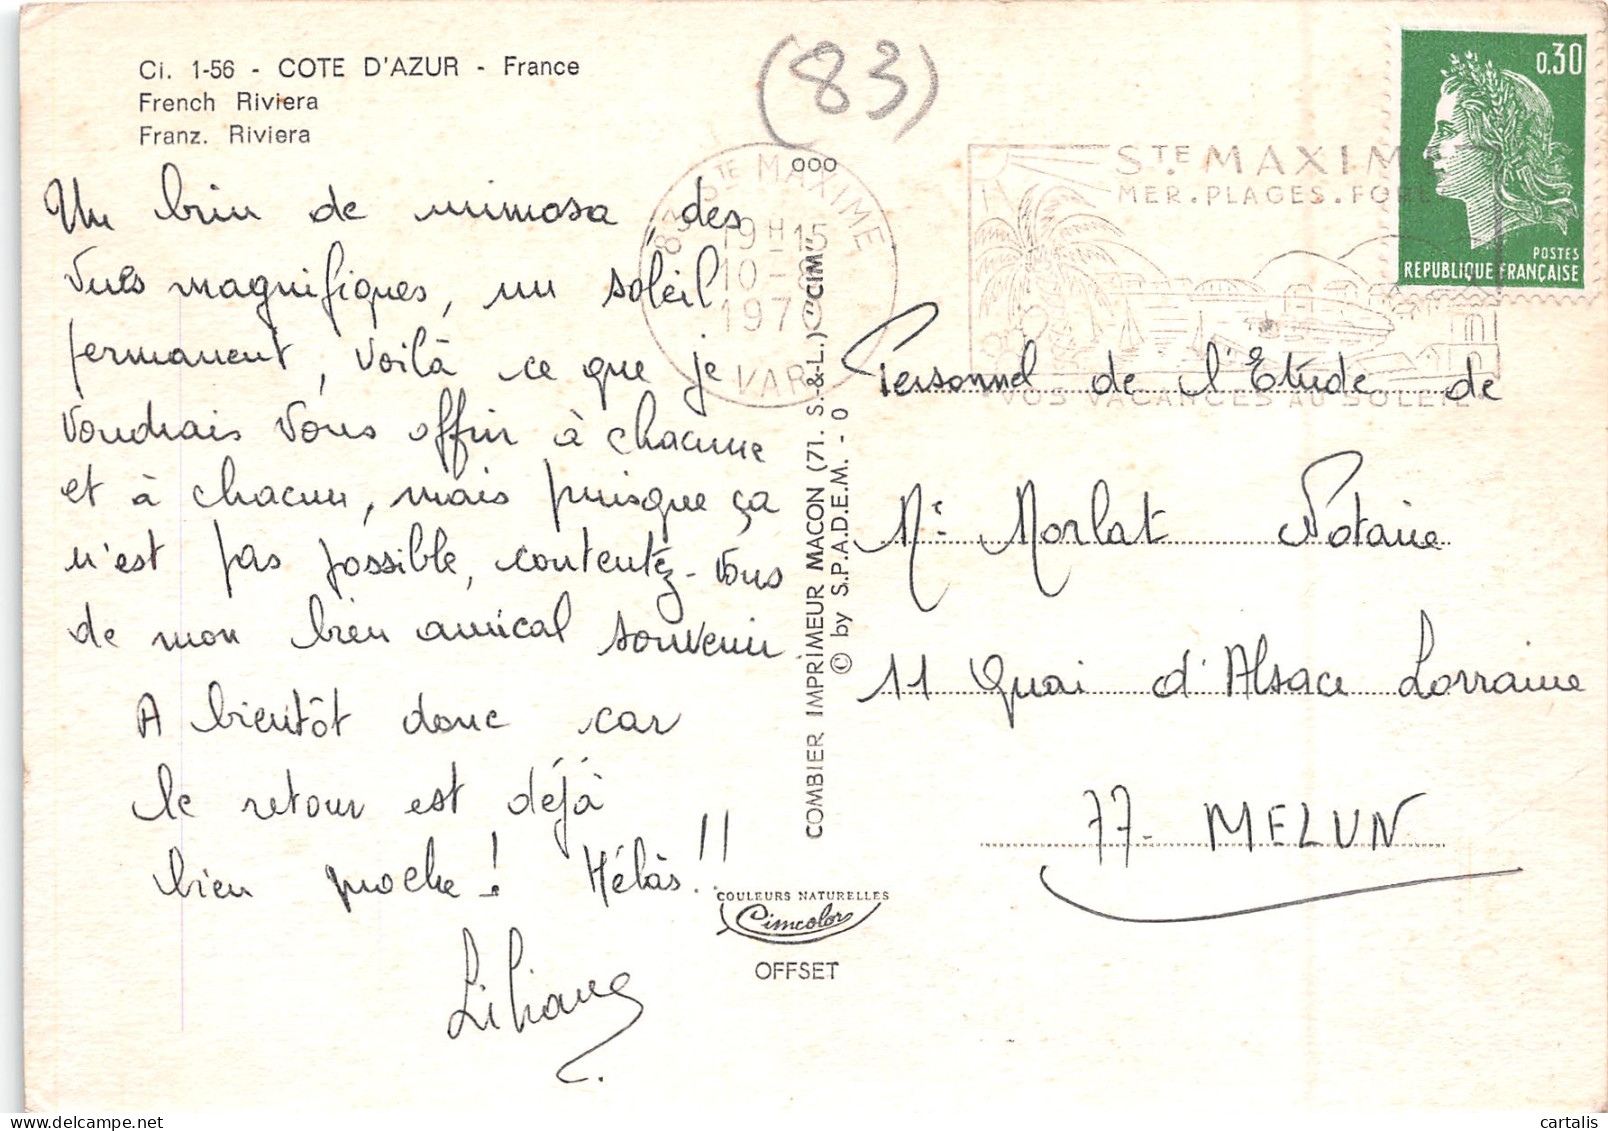 Ci. 1-56 - COTE D'AZUR - France
French Riviera
Franz. Riviera
(83)
Un brin de mimosa des
vues magnifiques, un soleil
permanent, voilà ce que je
voudrais vous offrir à chacune
et à chacun, mais puisque ça
n'est pas possible, contentez-vous
de mon bien amical souvenir
A bientôt donc car
le retour est déjà
bien proche ! Hélas !!
Liliane
000
83 STE MAXIME
19H15
10-8
197
VAR
STE MAXIME
MER.PLAGES.FORE
VOS VACANCES AU SOLEIL
0,30
POSTES
REPUBLIQUE FRANÇAISE
COMBIER IMPRIMEUR MACON (71. S.-&-L.) "CIM"
© by S.P.A.D.E.M. - 0
COULEURS NATURELLES
Cimcolor
OFFSET
Personnel de l'Etude de
Me Morlat Notaire
11 Quai d'Alsace Lorraine
77- MELUN
cartalis